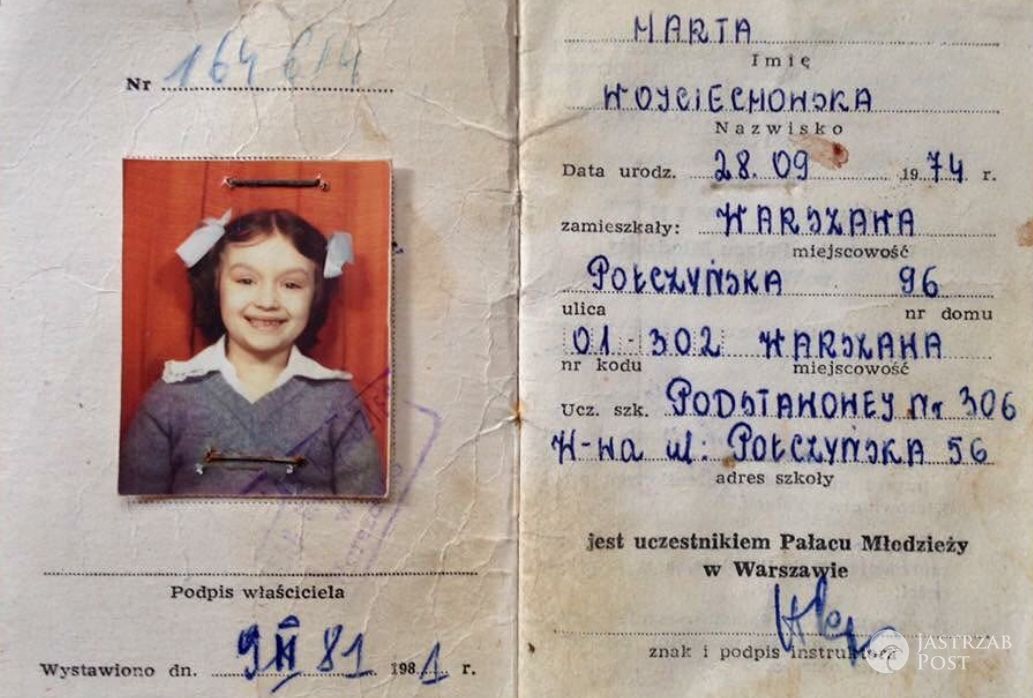 Nr 164614
Podpis właściciela
Wystawiono dn. 9 III 81 1981 r.
MARTA
Imię
WOJCIECHOWSKA
Nazwisko
Data urodz. 28.09 1974 r.
zamieszkały: WARSZAWA
miejscowość
POŁCZYŃSKA 96
ulica nr domu
01-302 WARSZAWA
nr kodu miejscowość
Ucz. szk. PODSTAWOWEJ Nr 306
W-wa ul: POŁCZYŃSKA 56
adres szkoły
jest uczestnikiem Pałacu Młodzieży
w Warszawie
znak i podpis instruktora
JASTRZĄB
POST